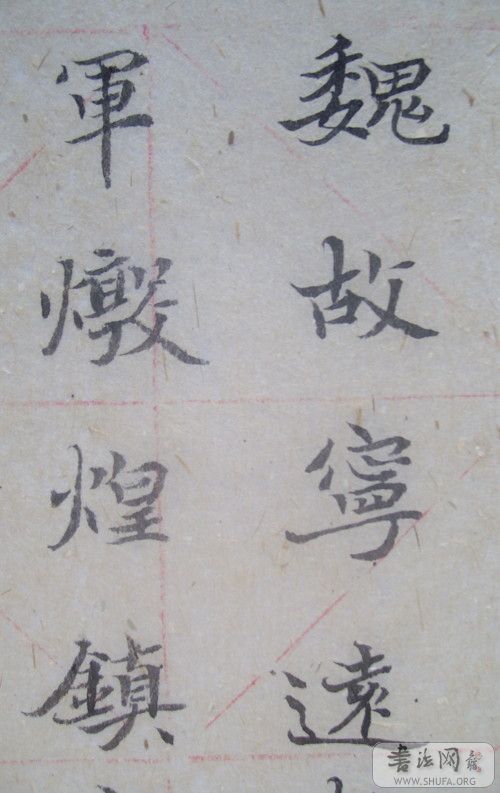 魏故寧遠
軍燉煌鎮
书法网
WWW.SHUFA.ORG